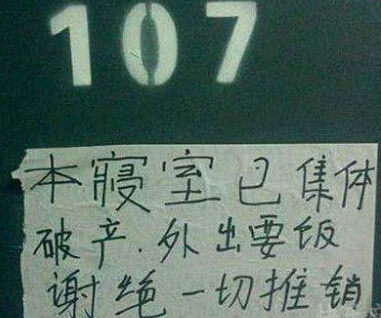 107
本寢室已集体
破产.外出要饭
谢绝一切推销